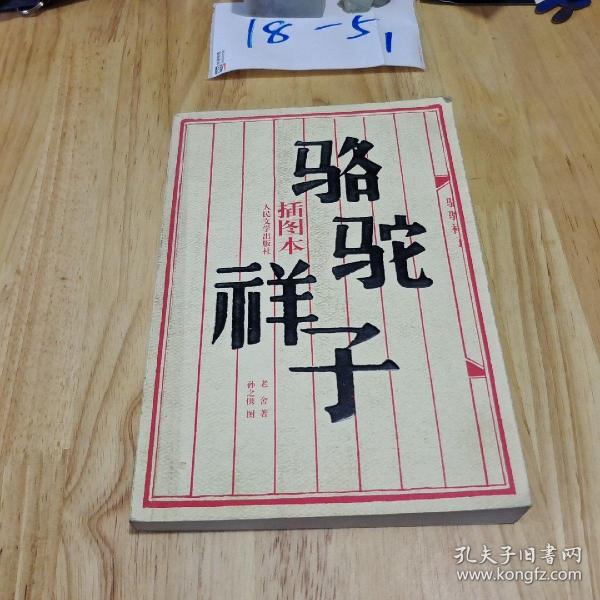 18-51
骆驼
祥子
插图本
人民文学出版社
老舍 著
孙之儁 图
骆驼祥子
孔夫子旧书网
www.kongfz.com